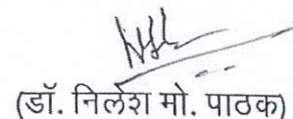 (डॉ. निलेश मो. पाठक)